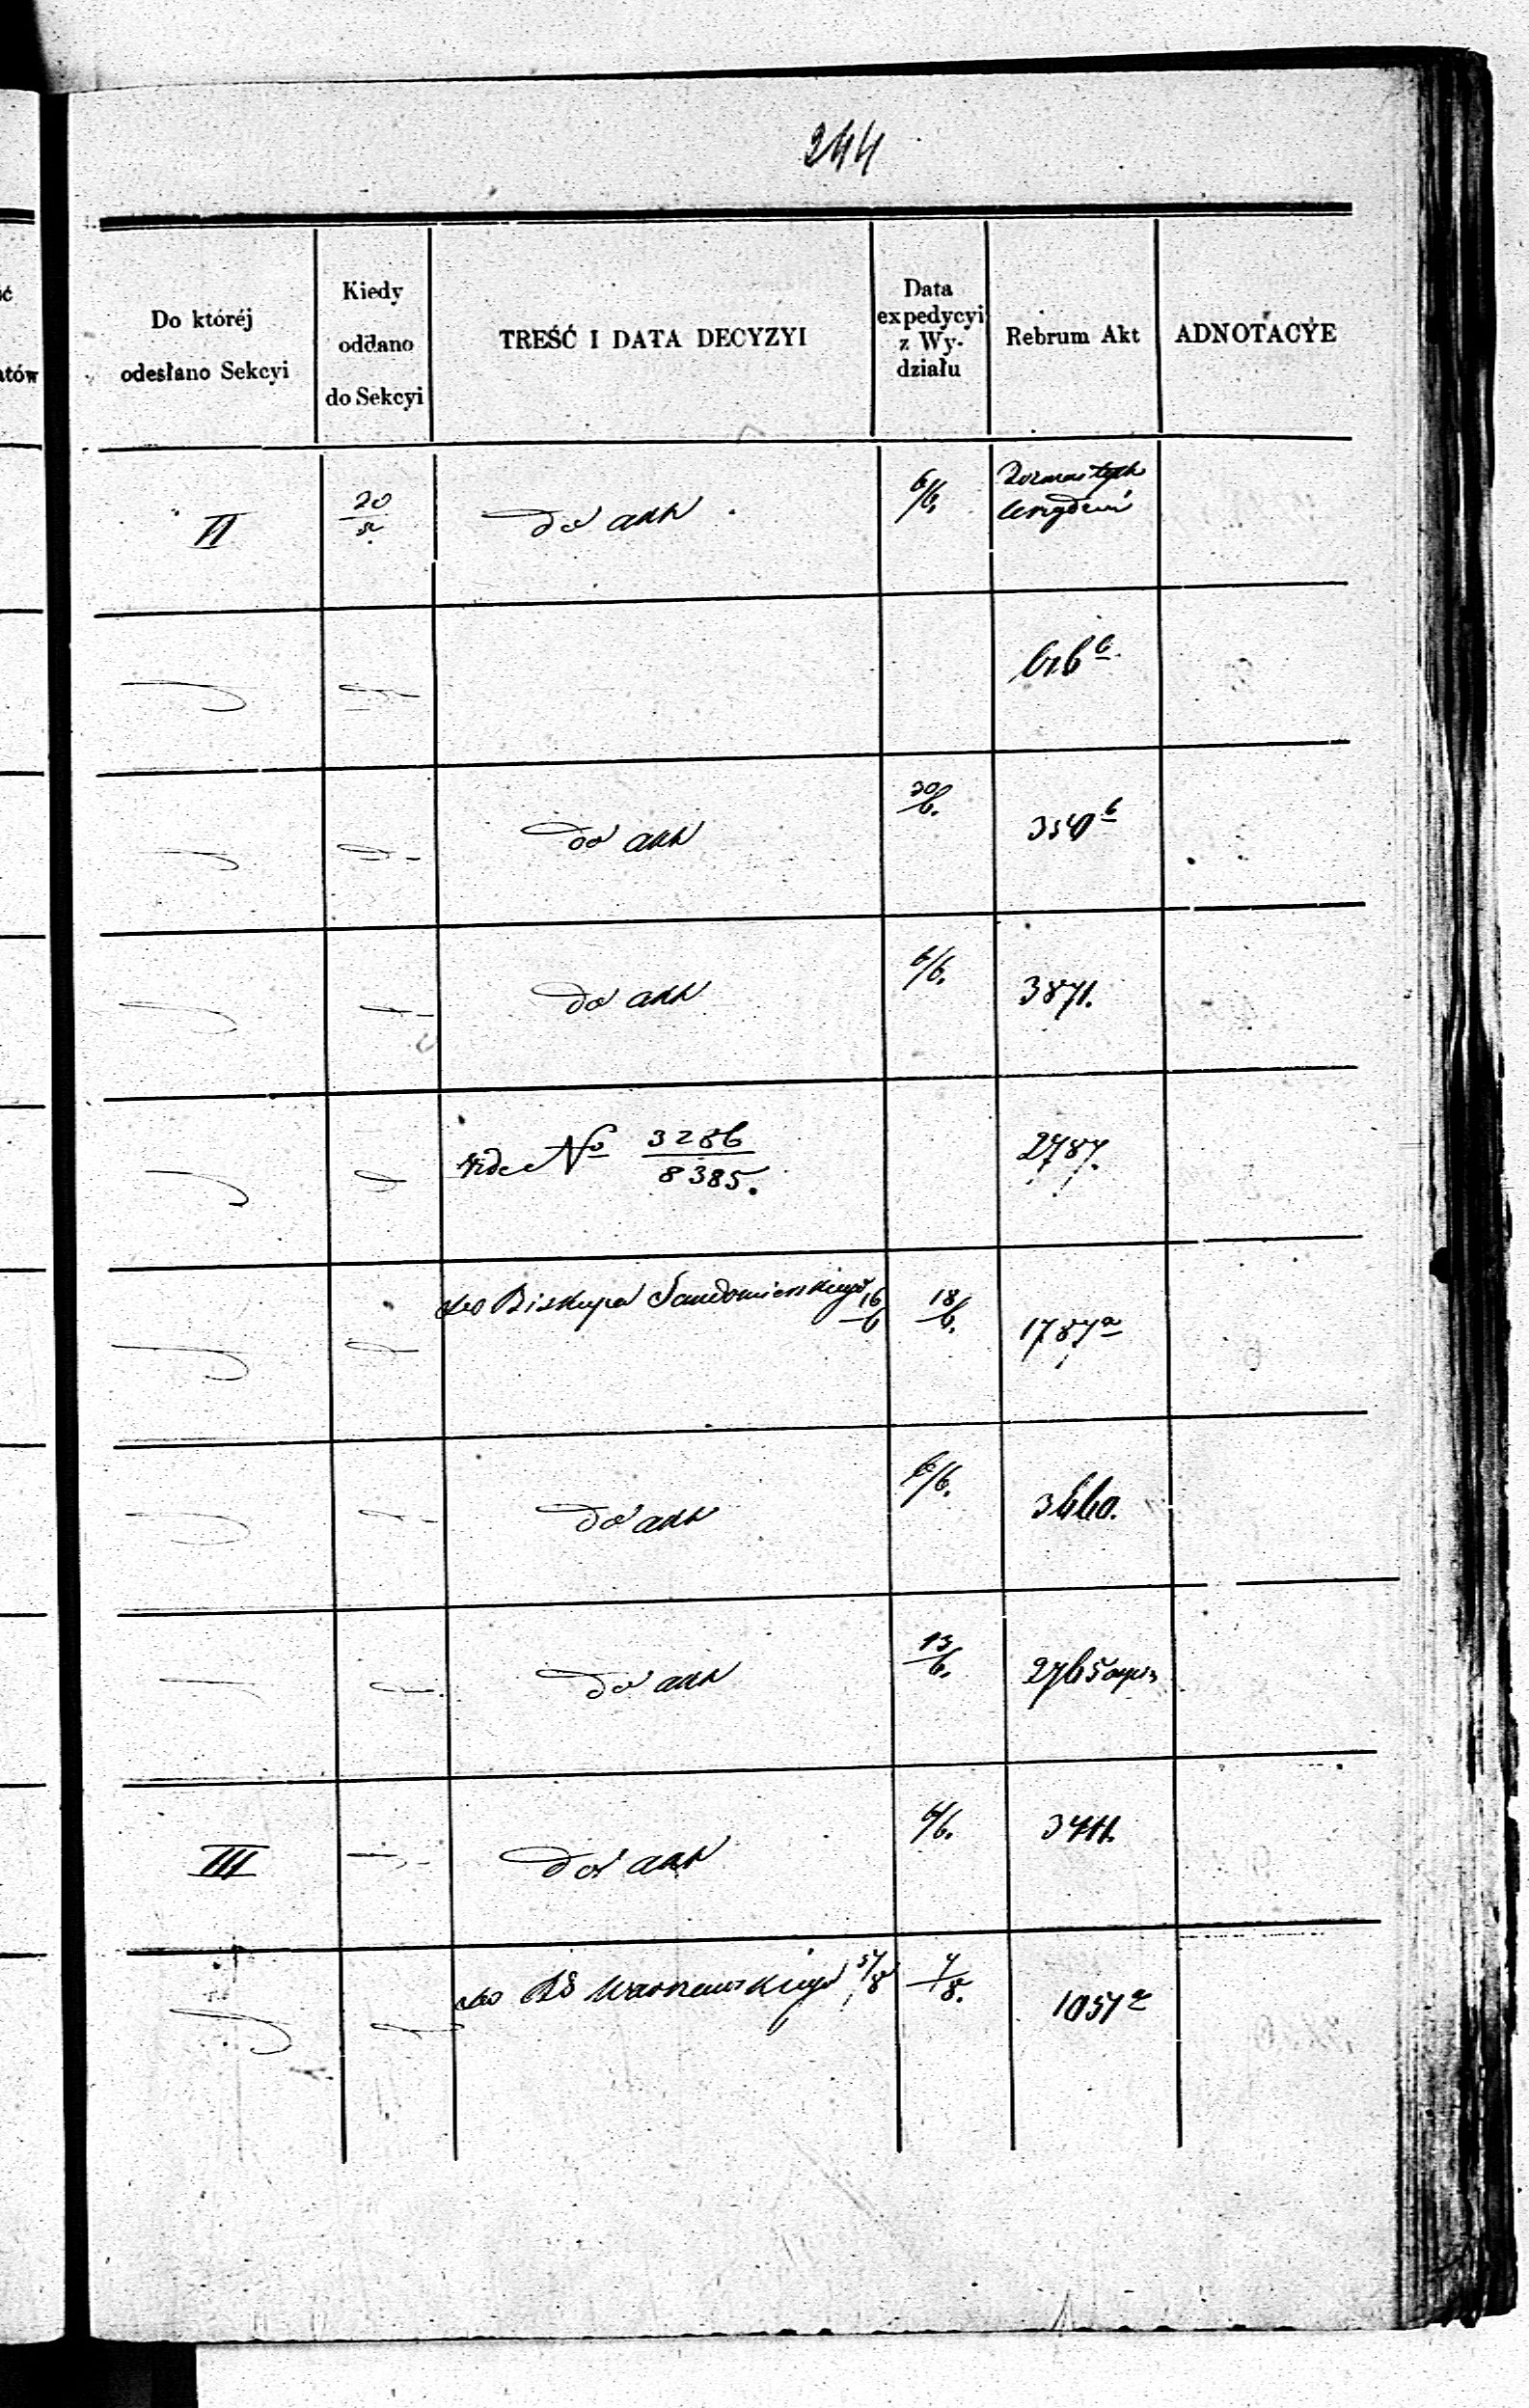 244
Do któréj
odesłano Sekcyi
Kiedy
oddano
do Sekcyi
TREŚĆ I DATA DECYZYI
Data
expedycyi
z Wy-
działu
Rebrum Akt
ADNOTACYE
II
20/5
do akt
6/6.
do akt
20/6.
350 b
do akt
6/6.
3871.
vide No 3286/8385.
2787.
do Biskupa Sandomierskiego 16/6
18/6.
1787 a
do akt
6/6.
3660.
do akt
13/6.
2765
III
do akt
6/6.
do RG Warszawskiego 5/8
7/8.
1051 a